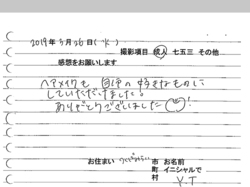 2019年3月26日(火)
撮影項目 成人 七五三 その他
感想をお願いします
ヘアメイクも 自分の好きなものに
していただけました!
ありがとうございました!
お住まい つくばみらい 市 お名前
町 イニシャルで
村 Y.T